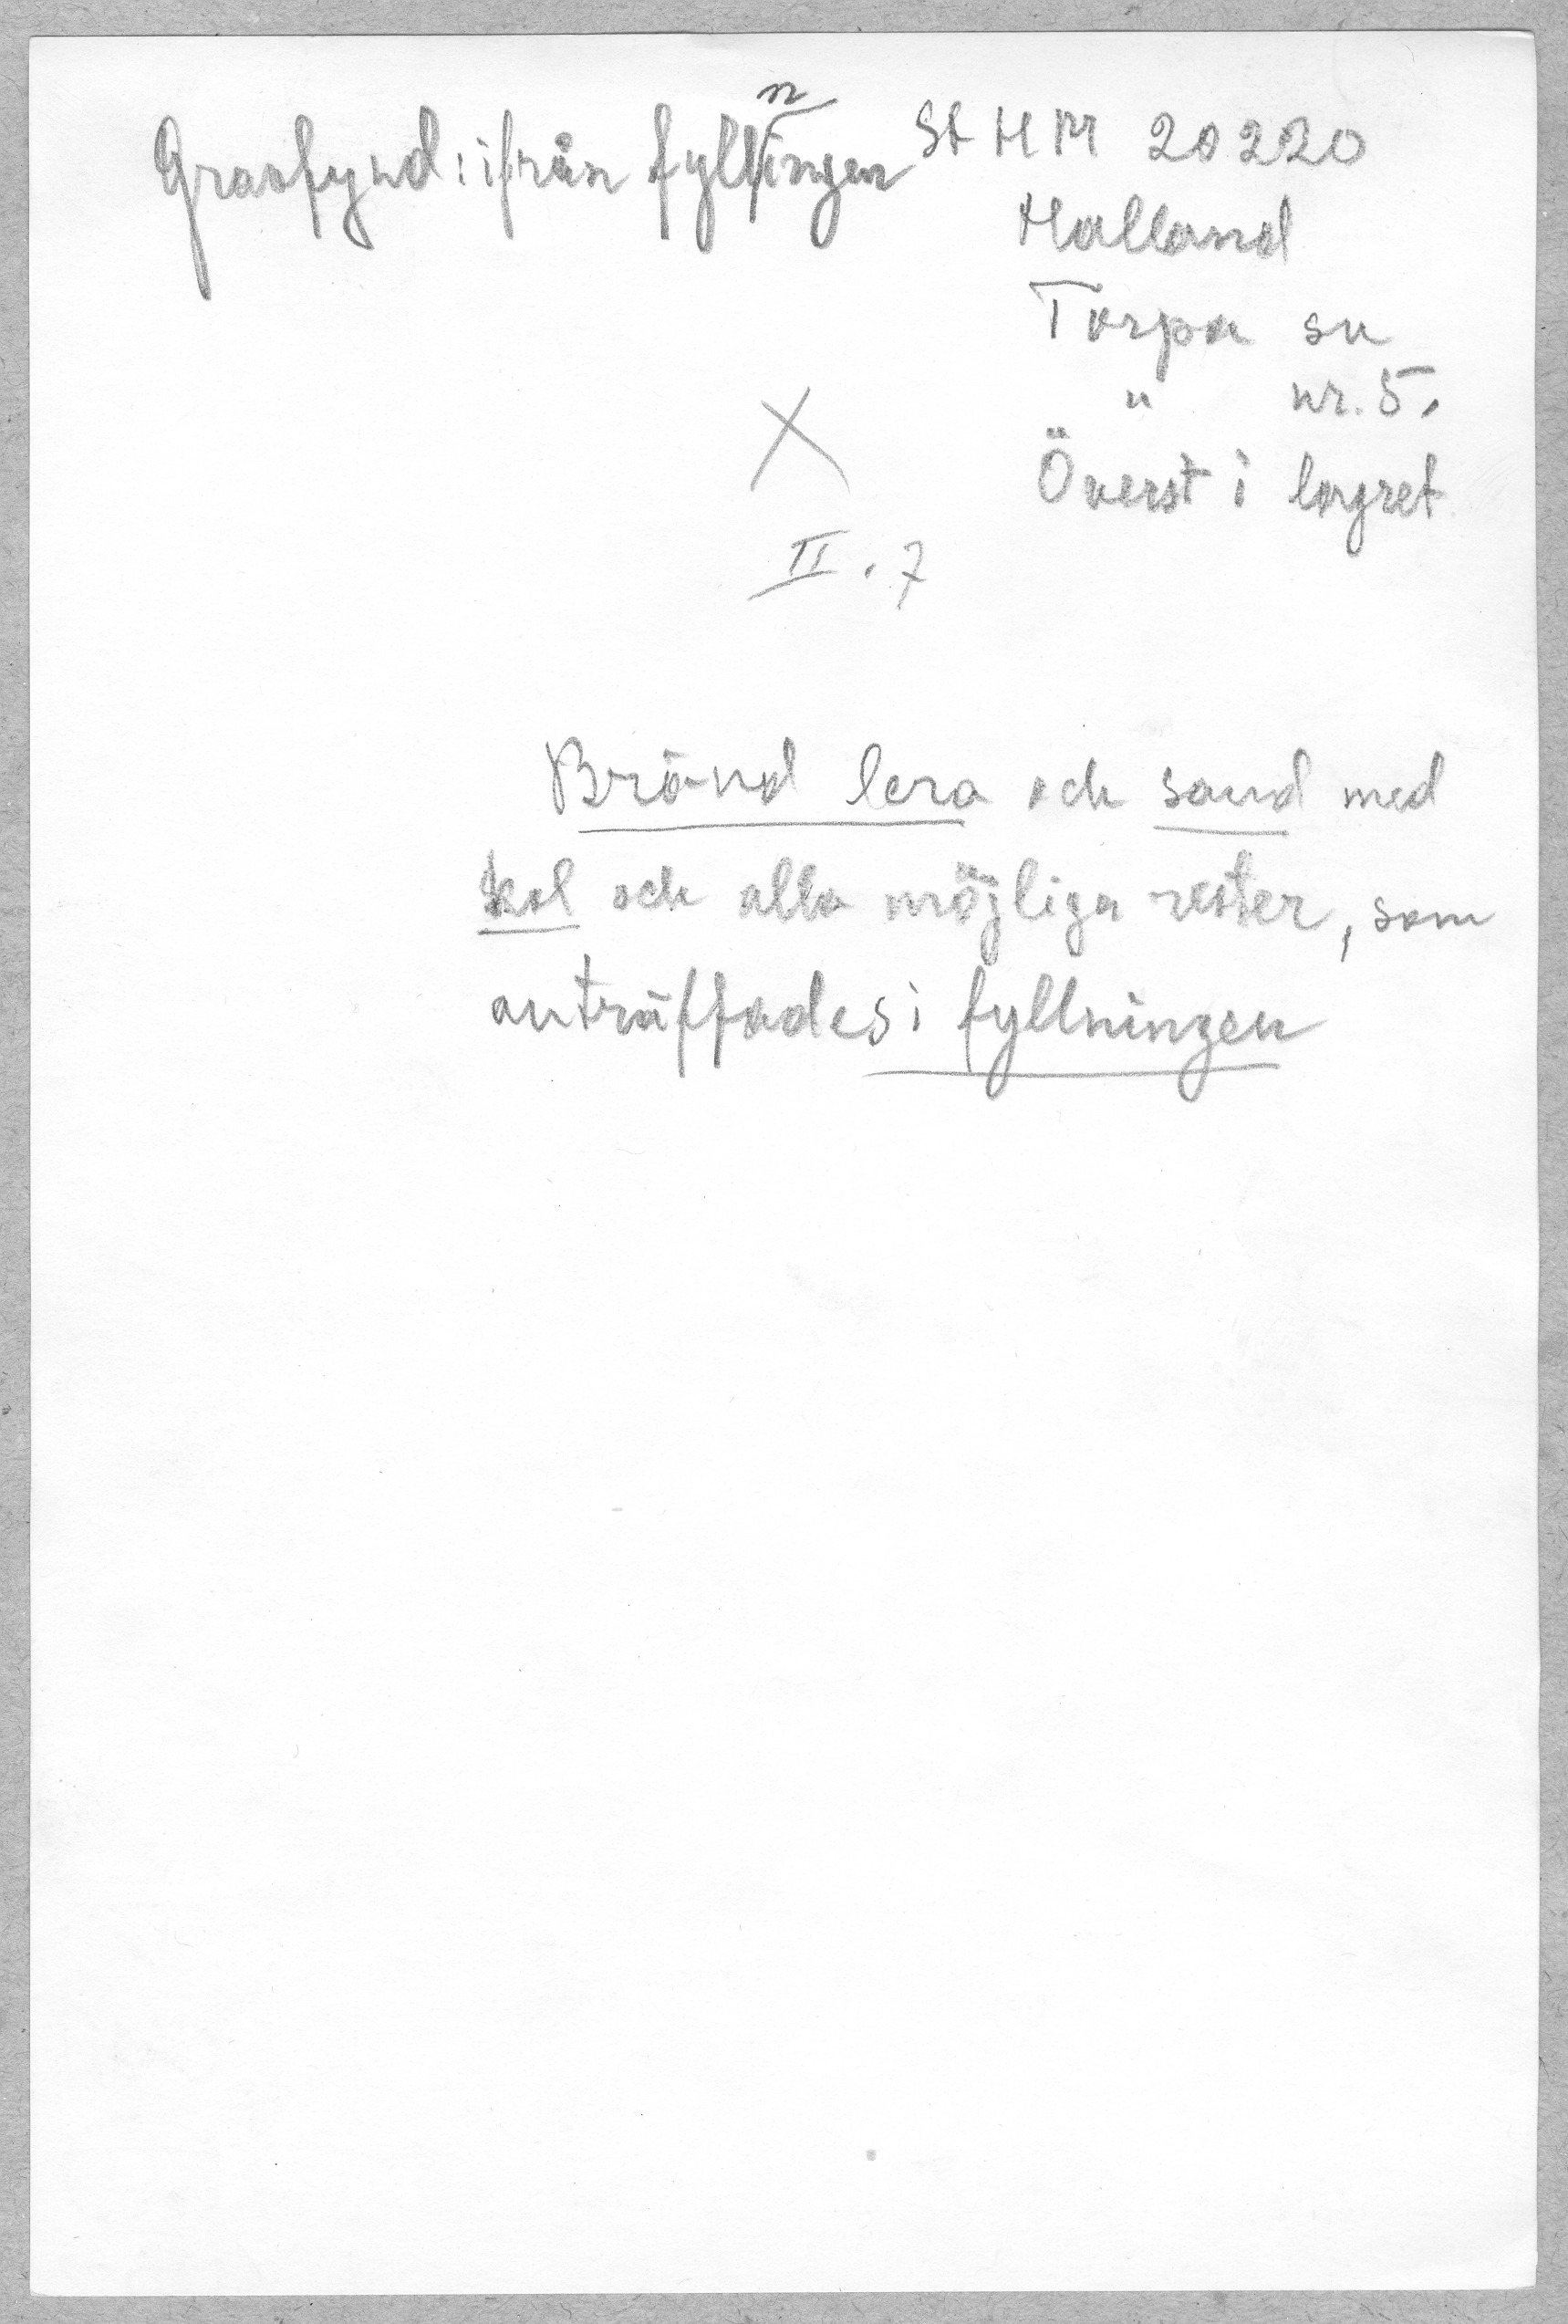 Gravfynd: ifrån fyllningen
St H M 20220
Halland
Torpa sn
" nr. 5.
Överst i lagret
X
II. 7
Bränd lera och sand med
kol och alla möjliga rester, som
anträffades i fyllningen